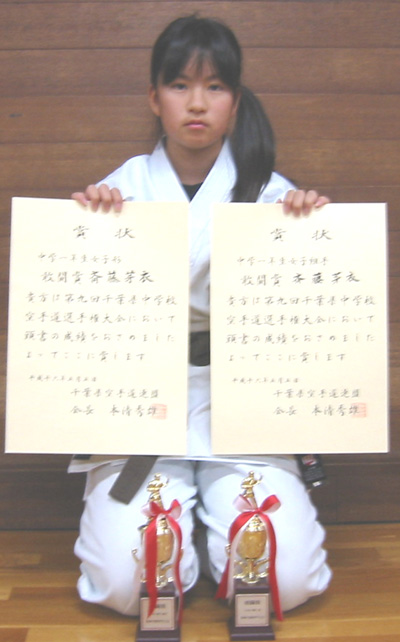 賞状
中学一年生女子形
敢闘賞 斉藤芽衣
貴方は第九回千葉県中学校
空手道選手権大会において
頭書の成績をおさめました
よってここに賞します
平成十六年五月五日
千葉県空手道連盟
会長 本清秀雄
賞状
中学一年生女子組手
敢闘賞 斉藤芽衣
貴方は第九回千葉県中学校
空手道選手権大会において
頭書の成績をおさめました
よってここに賞します
平成十六年五月五日
千葉県空手道連盟
会長 本清秀雄
敢闘賞